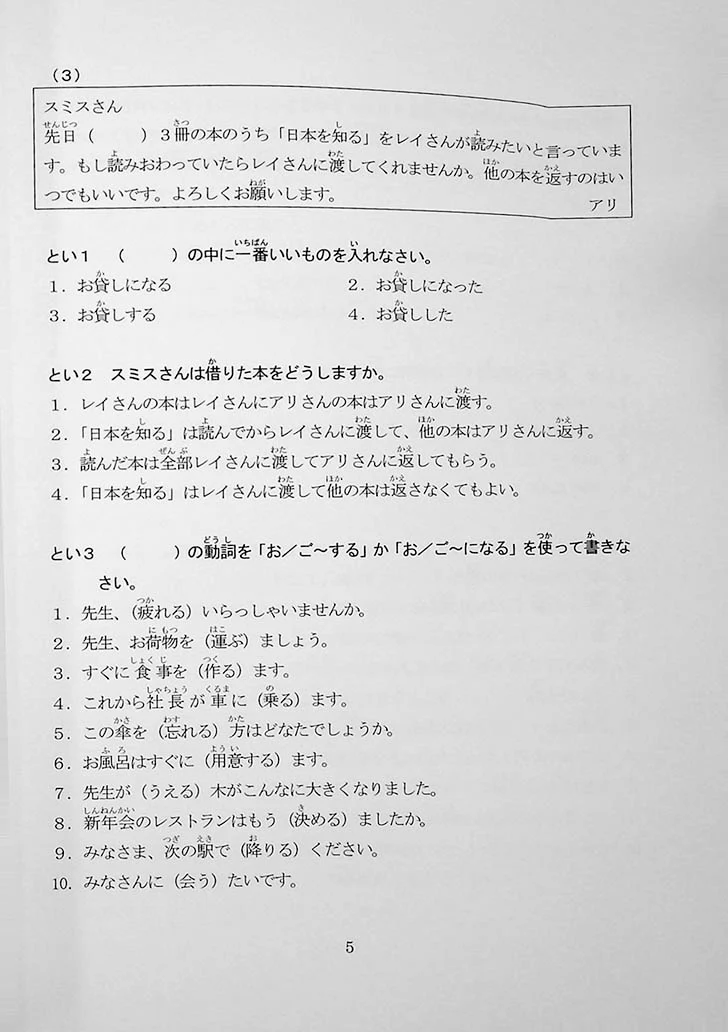 （３）
スミスさん
先日（　　　）３冊の本のうち「日本を知る」をレイさんが読みたいと言っていま
す。もし読みおわっていたらレイさんに渡してくれませんか。他の本を返すのはい
つでもいいです。よろしくお願いします。　　アリ
とい１　（　　　）の中に一番いいものを入れなさい。
１．お貸しになる　　２．お貸しになった
３．お貸しする　　４．お貸しした
とい２　スミスさんは借りた本をどうしますか。
１．レイさんの本はレイさんにアリさんの本はアリさんに渡す。
２．「日本を知る」は読んでからレイさんに渡して、他の本はアリさんに返す。
３．読んだ本は全部レイさんに渡してアリさんに返してもらう。
４．「日本を知る」はレイさんに渡して他の本は返さなくてもよい。
とい３　（　　　）の動詞を「お／ご～する」か「お／ご～になる」を使って書きな
さい。
１．先生、（疲れる）いらっしゃいませんか。
２．先生、お荷物を（運ぶ）ましょう。
３．すぐに食事を（作る）ます。
４．これから社長が車に（乗る）ます。
５．この傘を（忘れる）方はどなたでしょうか。
６．お風呂はすぐに（用意する）ます。
７．先生が（うえる）木がこんなに大きくなりました。
８．新年会のレストランはもう（決める）ましたか。
９．みなさま、次の駅で（降りる）ください。
10．みなさんに（会う）たいです。
5